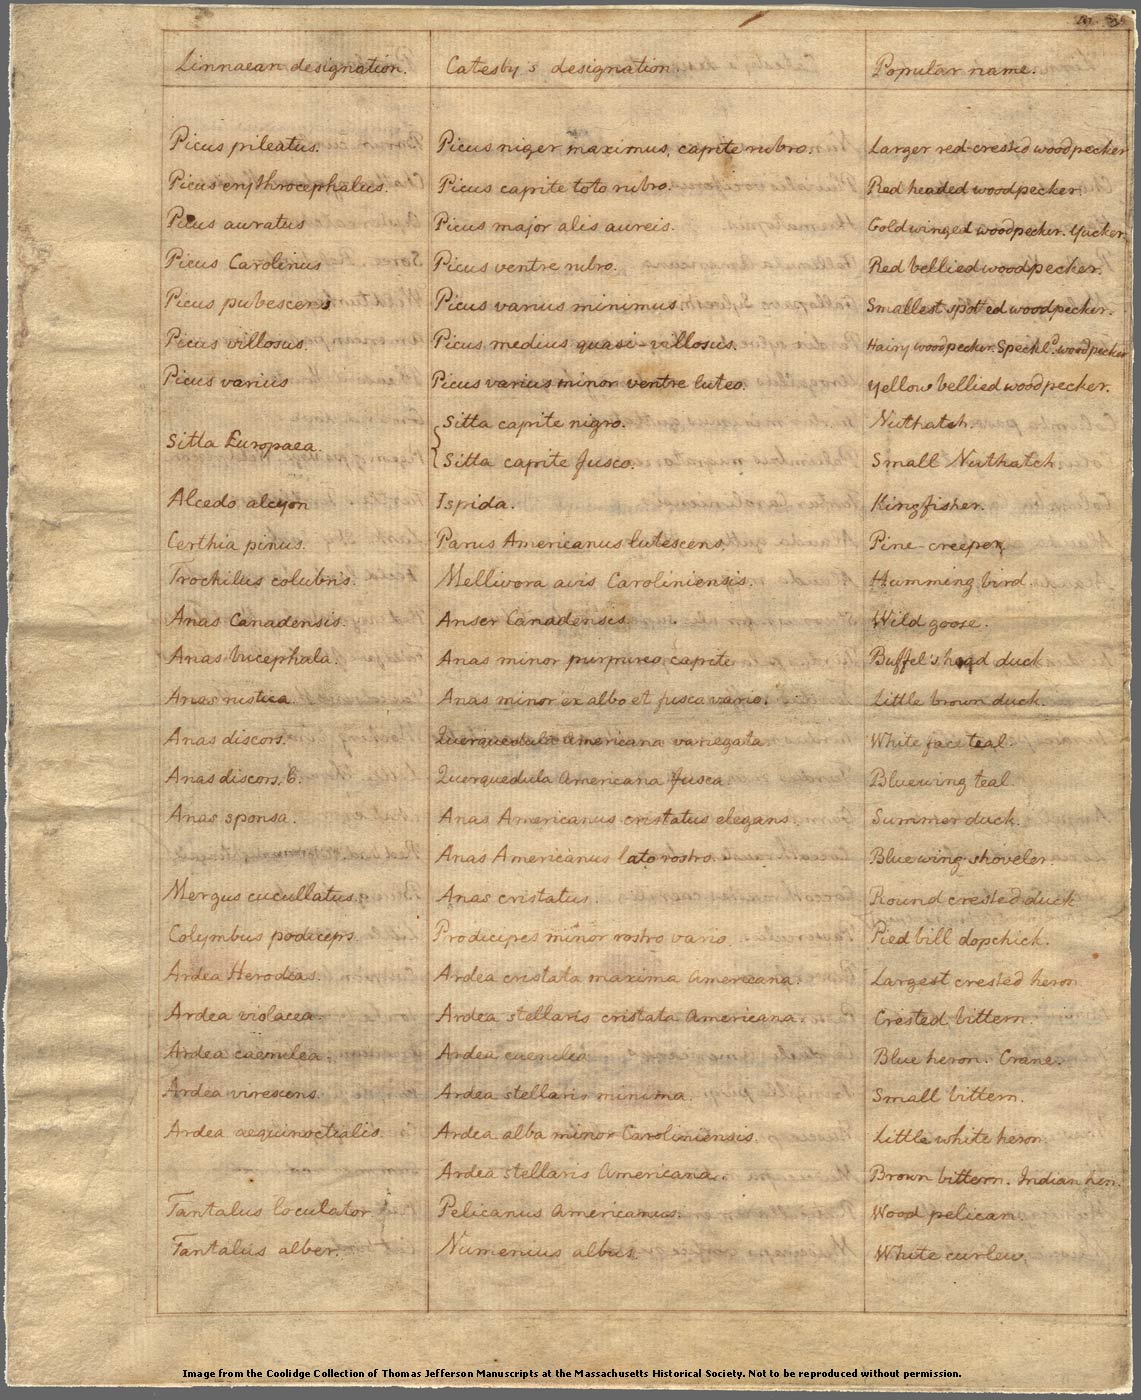 Linnaean designation. Catesby's designation. Popular name.
Picus pileatus. Picus niger maximus, capite rubro. Larger red-crested woodpecker
Picus erythrocephalus. Picus capite toto rubro. Red headed woodpecker.
Picus auratus Picus major alis aureis. Gold winged woodpecker. Yucker.
Picus Carolinus Picus ventre rubro. Red bellied woodpecker.
Picus pubescens Picus varius minimus. Smallest spotted woodpecker.
Picus villosus. Picus medius quasi-villosus. Hairy woodpecker. Speckld. woodpecker
Picus varius Picus varius minor ventre luteo. Yellow bellied woodpecker.
Sitta capite nigro. Nuthatch.
Sitta Europaea.
Sitta capite fusco. Small Nuthatch.
Alcedo alcyon Ispida. Kingfisher.
Certhia pinus. Parus Americanus lutescens. Pine-creeper
Trochilus colubris. Mellivora avis Caroliniensis. Humming bird.
Anas Canadensis. Anser Canadensis. Wild goose.
Anas bucephala. Anas minor purpureo capite Buffel's head duck
Anas rustica. Anas minor ex albo et fusco vario. Little brown duck.
Anas discors. Querquedula Americana variegata. White face teal.
Anas discors. 6. Querquedula Americana fusca. Bluewing teal.
Anas sponsa. Anas Americanus cristatus elegans. Summer duck.
Anas Americanus lato rostro. Blue wing shoveler.
Mergus cucullatus. Anas cristatus. Round crested duck
Colymbus podiceps. Prodicipes minor rostro vario. Pied bill dopchick.
Ardea Herodias. Ardea cristata maxima Americana. Largest crested heron
Ardea violacea. Ardea stellaris cristata Americana. Crested bittern.
Ardea caerulea. Ardea caerulea Blue heron. Crane.
Ardea virescens. Ardea stellaris minima. Small bittern.
Ardea aequinoctialis. Ardea alba minor Caroliniensis. Little white heron.
Ardea stellaris Americana. Brown bittern. Indian hen.
Tantalus loculator. Pelicanus Americanus. Wood pelican.
Tantalus alber. Numenius albus. White curlew.
Image from the Coolidge Collection of Thomas Jefferson Manuscripts at the Massachusetts Historical Society. Not to be reproduced without permission.